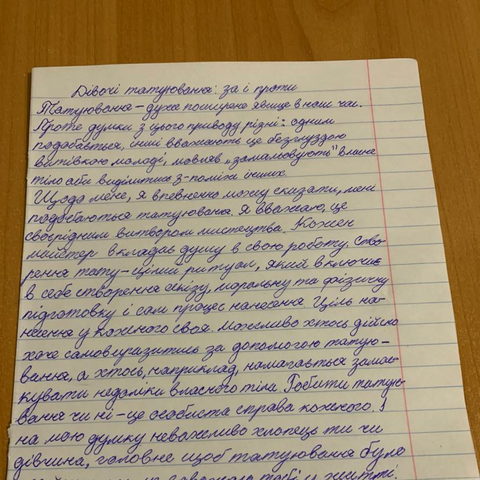 Дівочі татуювання: за і проти
Татуювання – дуже поширене явище в наш час.
Проте думки з цього приводу різні: одним
подобається, інші вважають це безглуздою
витівкою молоді, мовляв „замальовують" власне
тіло аби виділитися з-поміж інших.
Щодо мене, я впевнено можу сказати, мені
подобаються татуювання. Я вважаю, це
своєрідним витвором мистецтва. Кожен
майстер вкладає душу в свою роботу. Ство-
рення тату-цілий ритуал, який включає
в себе створення ескізу, моральну та фізичну
підготовку і сам процес нанесення Ціль на-
несення у кожного своя. Можливо хтось дійсно
хоче самовиразитись за допомогою татую-
вання, а хтось, наприклад, намагається замас-
кувати недоліки власного тіла. Робити татую-
вання чи ні – це особиста справа кожного. І
на мою думку неважливо хлопець ти чи
дівчина, головне щоб татуювання було
не заважало тобі у житті.